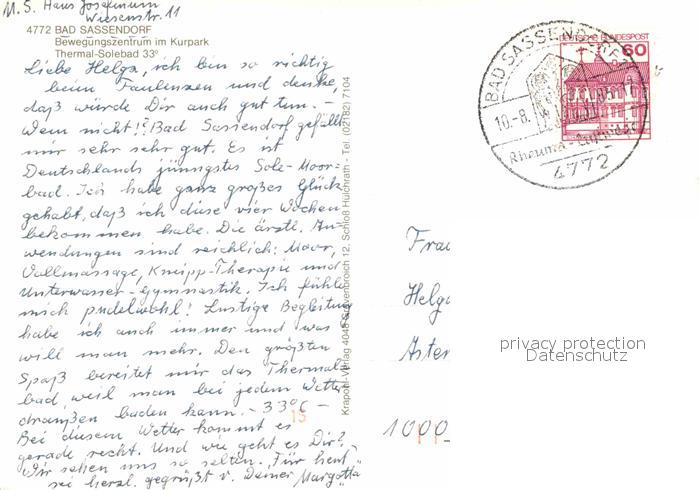 M.S. Haus Josefinum
Wiesenstr. 11
4772 BAD SASSENDORF
Bewegungszentrum im Kurpark
Thermal-Solebad 33°
Liebe Helga, ich bin so richtig
beim Faulenzen und denke,
daß würde Dir auch gut tun. -
Wem nicht!? Bad Sassendorf gefällt
mir sehr sehr gut. Es ist
Deutschlands jüngstes Sole-Moor-
bad. Ich habe ganz großes Glück
gehabt, daß ich diese vier Wochen
bekommen habe. Die ärztl. An-
wendungen sind reichlich: Moor,
Vollmassage, Kneipp-Therapie und
Unterwasser-Gymnastik. Ich fühle
mich pudelwohl! Lustige Begleitung
habe ich auch immer und was
will man mehr. Den größten
Spaß bereitet mir das Thermal-
bad, weil man bei jedem Wetter
draußen baden kann. - 33°C -
Bei diesem Wetter kommt es
gerade recht. Und wie geht es Dir? -
Wir sehen uns so selten. "Für heut"
sei herzl. gegrüßt v. Deiner Margotta
15
Krapohl-Verlag 4048 Grevenbroich 12, Schloß Hülchrath - Tel. (02182) 7104
DEUTSCHE BUNDESPOST
60
BAD SASSENDORF
10.-8.
Rheuma-
4772
Frau
Helga
Aster
1000
privacy protection
Datenschutz